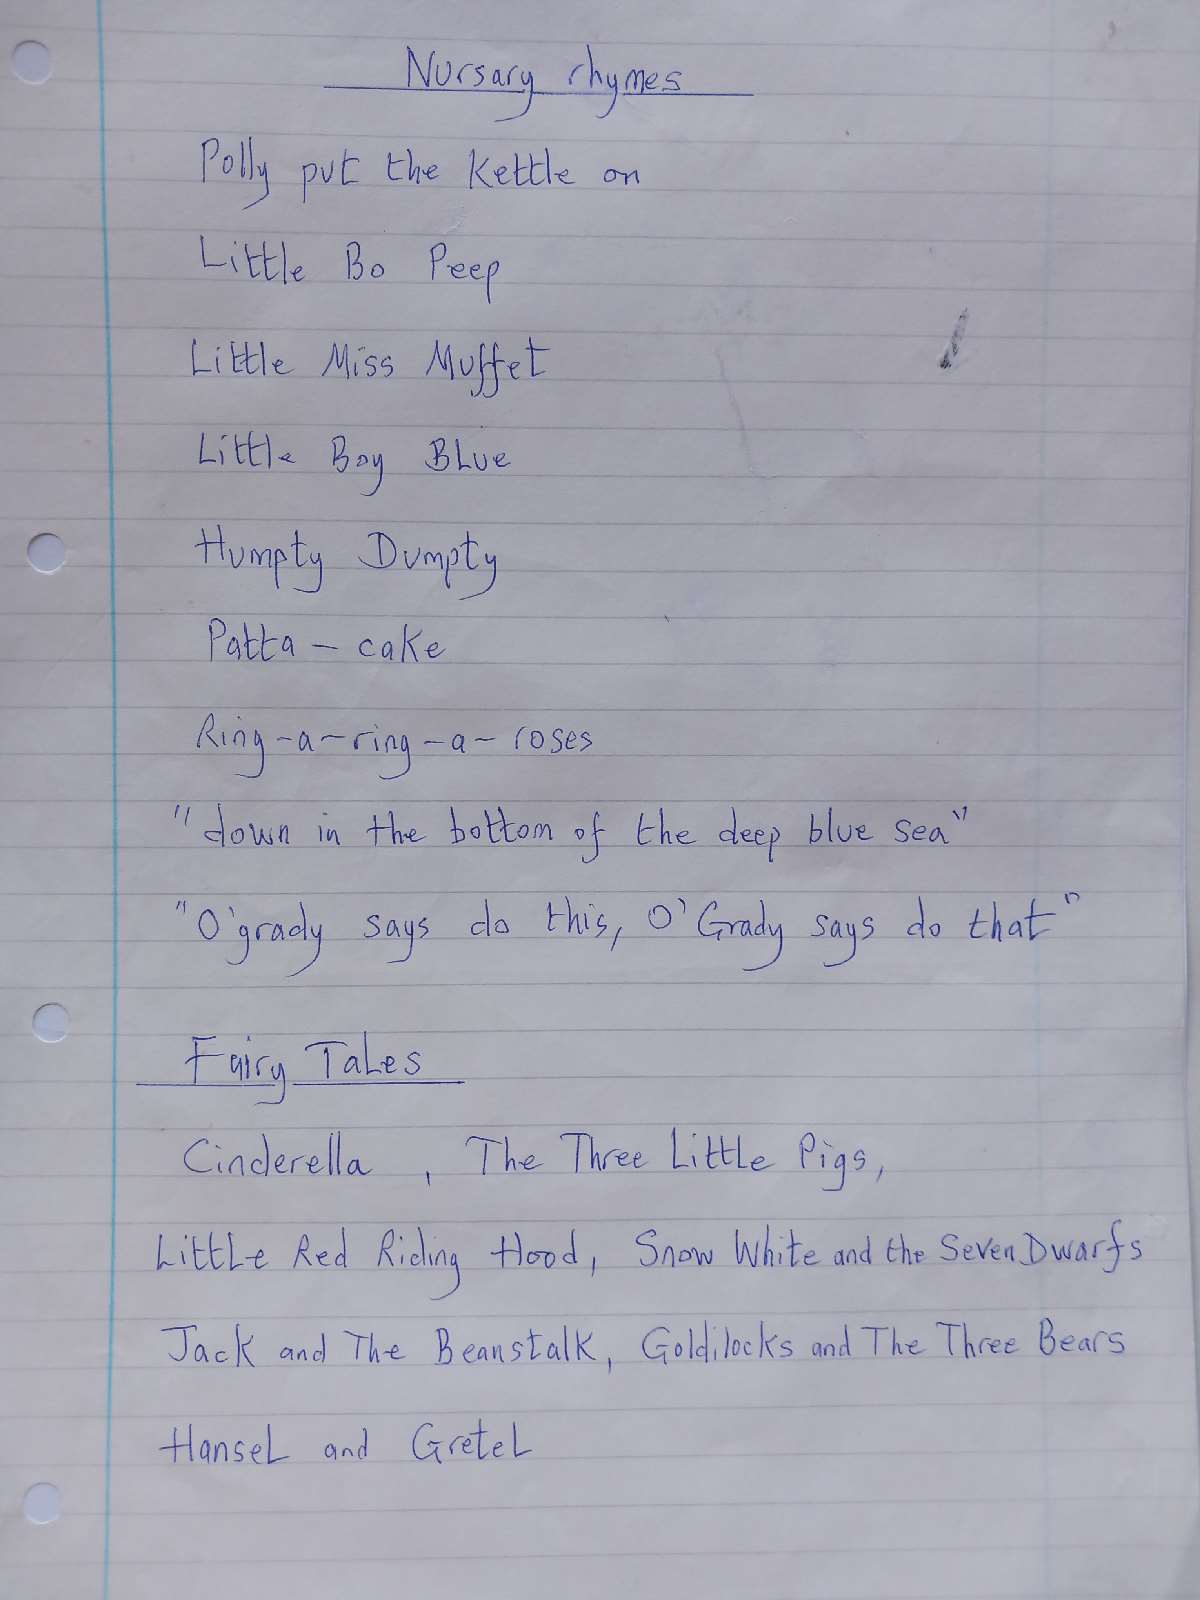 Nursary rhymes
Polly put the Kettle on
Little Bo Peep
Little Miss Muffet
Little Boy BLue
Humpty Dumpty
Patta - cake
Ring-a-ring-a-roses
"down in the bottom of the deep blue sea"
"O'grady says do this, O'Grady says do that"
Fairy TaLes
Cinderella , The Three Little Pigs,
LittLe Red Riding Hood, Snow White and the Seven Dwarfs
Jack and The Beanstalk, Goldilocks and The Three Bears
HanseL and GreteL